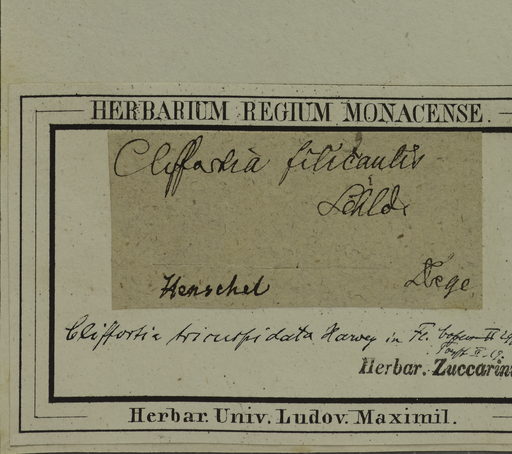 HERBARIUM REGIUM MONACENSE.
Cliffortia filicaulis
Schld.
Henschel
Cliffortia tricuspidata Harvey in Fl.
Herbar. Zuccarini
Herbar. Univ. Ludov. Maximil.